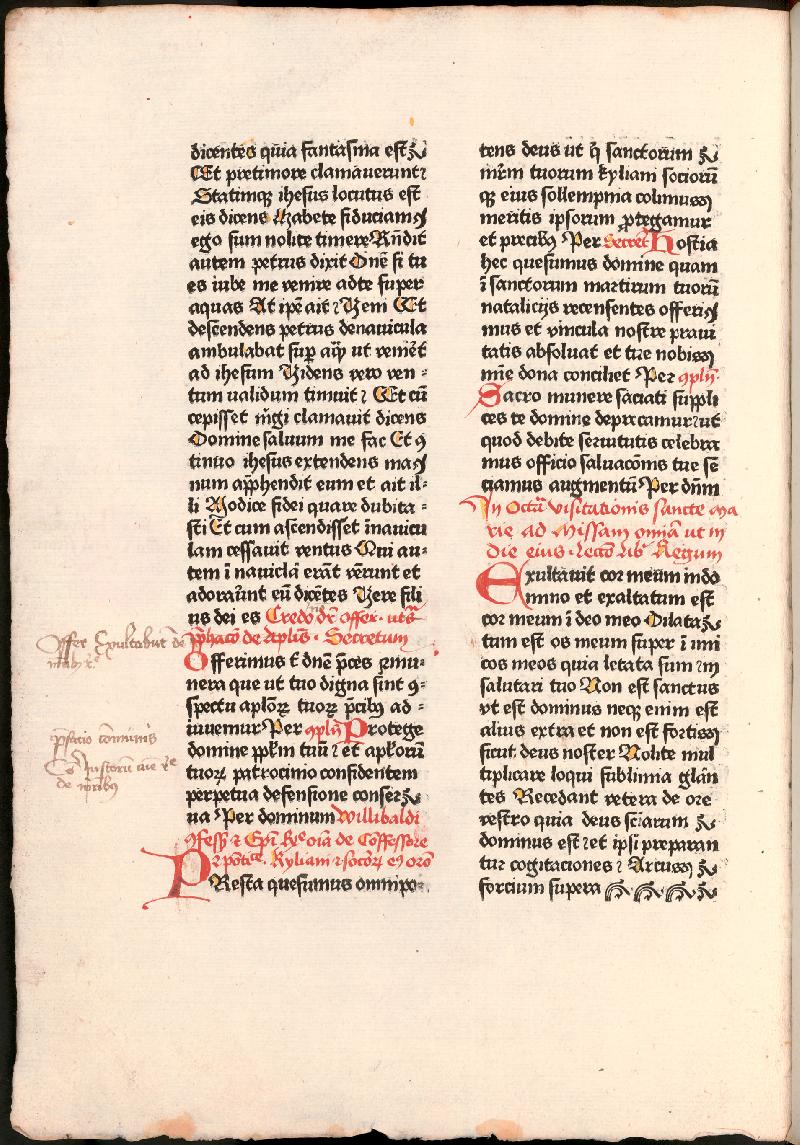 dicentes quia fantasma est
Et pretimore clamauerunt
Statimqꝫ ihesus locutus est
eis dicens Habete fiduciam
ego sum nolite timere Rn̄dit
autem petrus dixit Dn̄e si tu
es iube me venire adte super
aquas At ip̄e ait Veni Et
descendens petrus denauicula
ambulabat sup̄ aq̄ȝ ut veniret
ad ihesum Videns vero ven-
tum ualidum timuit Et cū
cepisset m̄gi clamauit dicens
Domine saluum me fac Et ꝯ
tinuo ihesus extendens ma
num app̄hendit eum et ait il-
li Modice fidei quare dubita-
sti Et cum ascendisset īnauicu
lam cessauit ventus Qui au-
tem ī nauicla erāt vēnerunt et
adoraūnt eū dicētes Vere fili
us dei es Credo dr̄ offer. uts̄
p̄phacō de ap̄lis. Secretum
Offerimus t̄ dn̄e p̄ces ⁊mu-
nera que ut tuo digna sint ꝯ-
spectu ap̄loꝝ tuoꝝ p̄cibꝫ ad-
iuuemur Per ꝯplñ Protege
domine pp̄lm tuū ⁊ et ap̄loꝝū
tuoꝝ patrocinio confidentem
perpetua defensione conser
ua Per dominum Willibaldi
ꝯfess̄ ⁊ Ep̄i oīa de Cōfessore
Kyliani ⁊ socoꝝ eꝯ orō
PResta quesumus omnipo-
Offer Exultabūt
p̄facio com̄unis
de m̄ribꝫ
tens deus ut q̄ sanctorum
mr̄m tuorum kyliani sociorū
qꝫ eius sollempnia colimus
meritis ipsorum ꝓtegamur
et precibꝫ Per Secret̄ Hostia
hec quesumus domine quam
ī sanctorum martirum tuorū
natalicijs recensentes offeri
mus et vincula nostre praui
tatis absoluat et tue nobis
mīe dona conciliet Per ꝯplñ.
Sacro munere saciati suppli
ces te domine deprecamur ut
quod debite seruitutis celebra
mus officio saluacōnis tue sē
ciamus augmentū Per dn̄m
In Octā visitationis sancte Ma
rie ad Missam omīa ut in
die eius. Lectō libͥ Regum
Exultauit cor meum indo
mino et exaltatum est
cor meum ī deo meo Dilata
tum est os meum super ī imi
cos meos quia letata sum in
salutari tuo Non est sanctus
vt est dominus neqꝫ enim est
alius extra et non est fortis
sicut deus noster Nolite mul
tiplicare loqui sublimia glān
tes Recedant vetera de ore
vestro quia deus sciarum
dominus est et ipsi preparan
tur cogitaciones Arcus
forcium supera